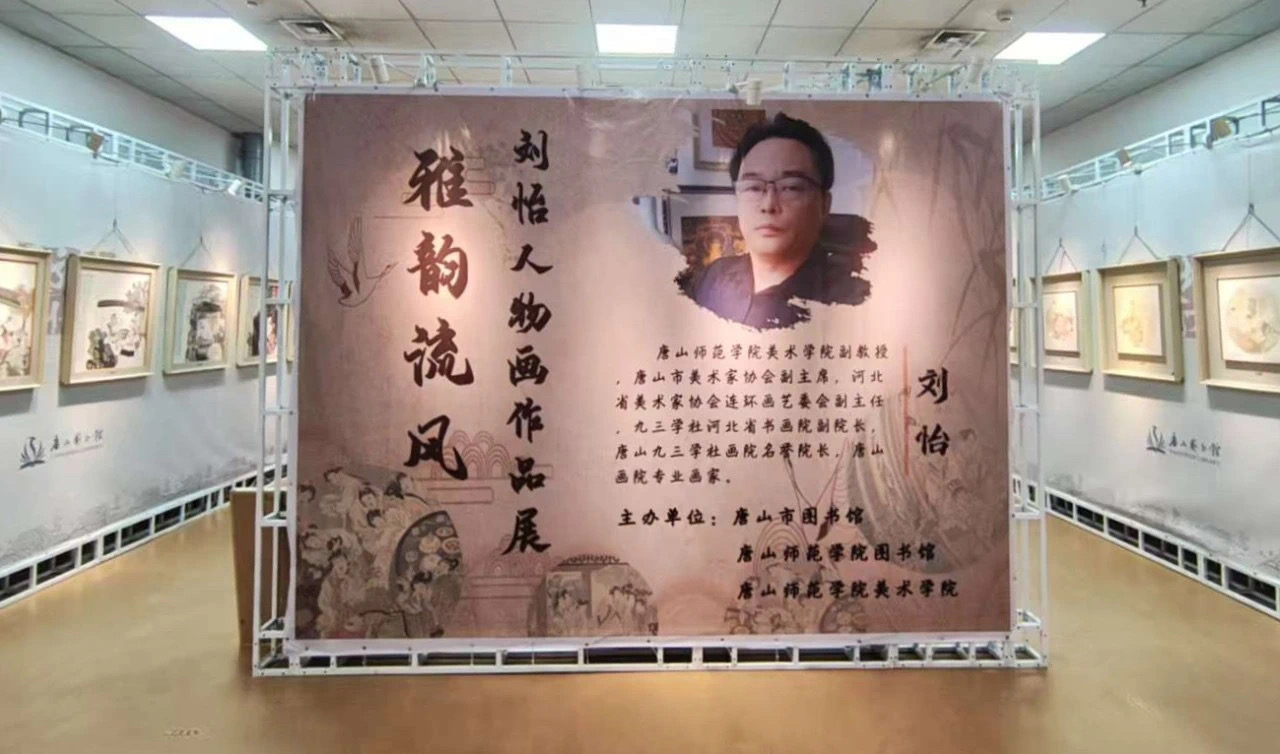 雅韵流风
刘怡人物画作品展
唐山师范学院美术学院副教授
，唐山市美术家协会副主席，河北
省美术家协会连环画艺委会副主任
，九三学社河北省书画院副院长，
唐山九三学社画院名誉院长，唐山
画院专业画家。
刘怡
主办单位：唐山市图书馆
唐山师范学院图书馆
唐山师范学院美术学院
唐山图书馆
唐山图书馆